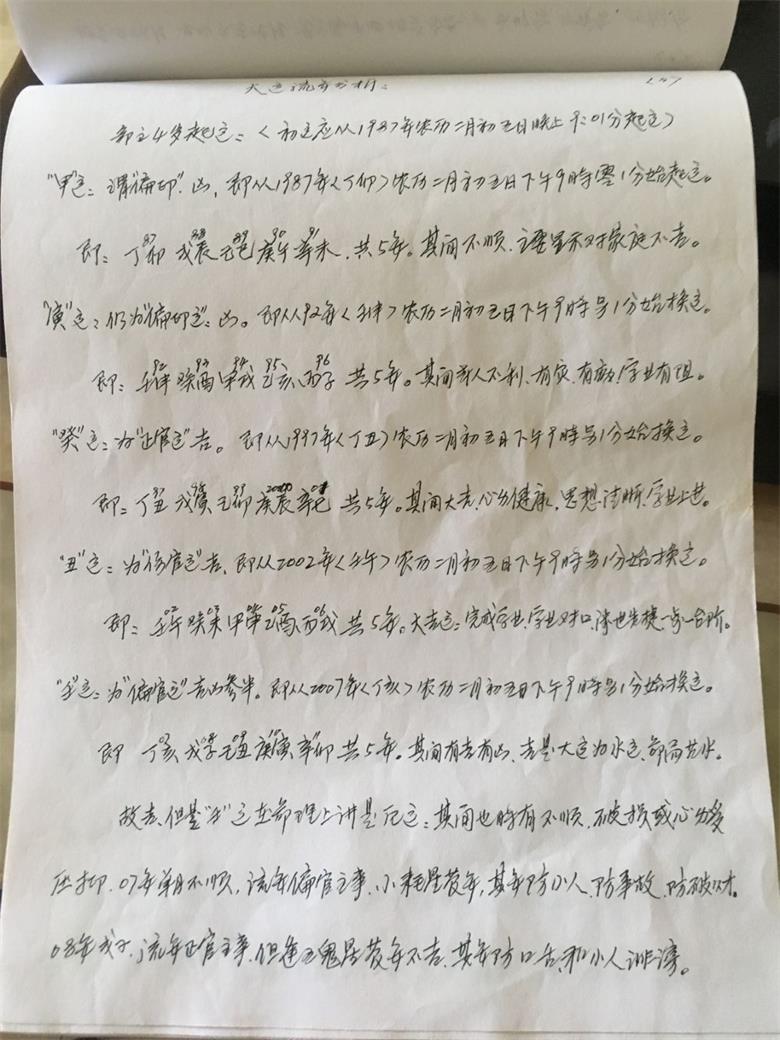 大运流年分析:
命主4岁起运:(初运应从1987年农历二月初五日晚上9:01分起运)
"甲"运:谓"偏印"凶,即从1987年(丁卯)农历二月初五日下午9時零1分始起运。
87 88 89 90 91
即:丁卯 戊辰 己巳 庚午 辛未,共5年。其间不顺,主要显示对家庭不吉。
"寅"运:仍为"偏印运"凶。即从92年(壬申)农历二月初五日下午9時另1分始换运。
92 93 94 95 96
即:壬申 癸酉 甲戌 乙亥 丙子 共5年。其间亲人不利、有灾、有破!学业有阻。
"癸"运:为"正官运"吉。即从1997年(丁丑)农历二月初五日下午9時另1分始换运。
97 98 99 2000 01
即:丁丑 戊寅 己卯 庚辰 辛巳 共5年。其间大吉,心身健康,思想清晰,学业上进。
"丑"运:为"伤官运"吉,即从2002年(壬午)农历二月初五日下午9時另1分始换运。
02 03 04 05 06
即:壬午 癸未 甲申 乙酉 丙戌 共5年。大吉运:完成学业,学业对口,步一台阶。
"壬"运:为"偏官运"吉凶参半。即从2007年(丁亥)农历二月初五日下午9時另1分始换运。
即 丁亥 戊子 己丑 庚寅 辛卯 共5年。其间有吉有凶,吉是大运为水运,命局节水。
故吉,但是"壬"运在命理上讲是厄运:其间也時有不顺,破损或心身多
压抑,07年单月不顺,该年偏官主事,小耗星发年,其年防小人、防事故、防破财。
08年戊子,流年正官主事,但逢五鬼星发年不吉、其年防口舌和小人诽谤。